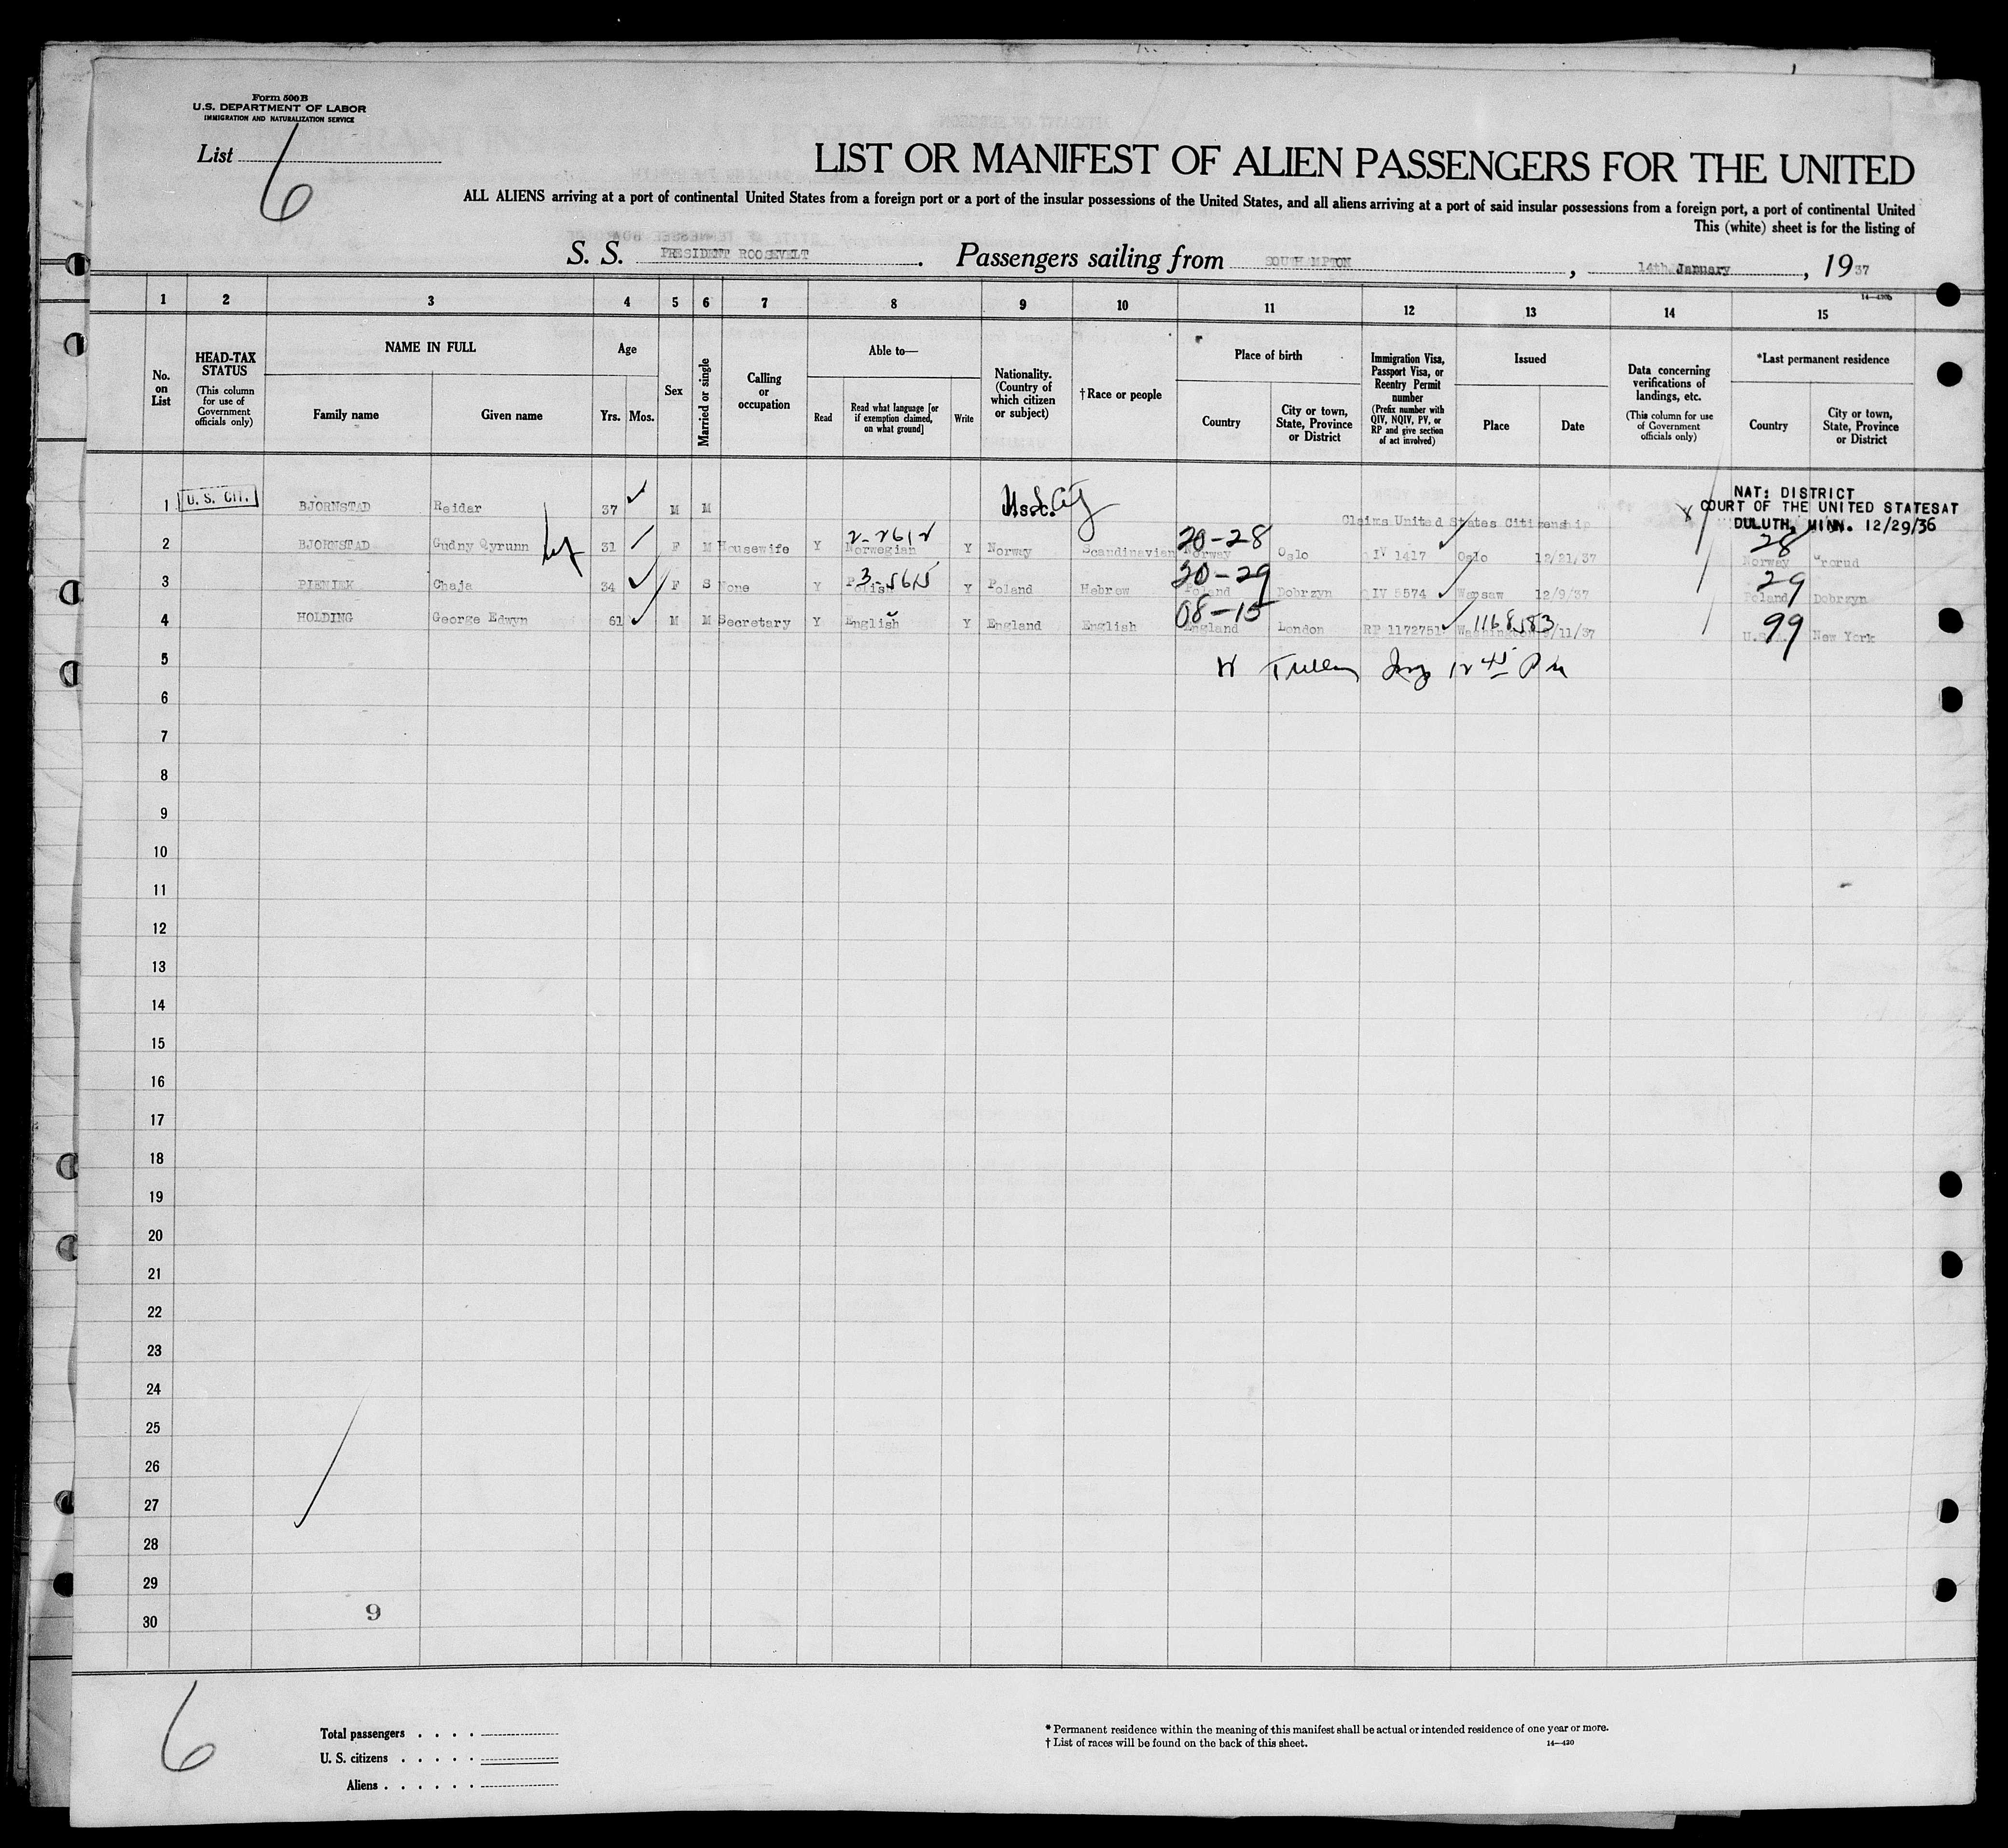 Form 500 B
U.S. DEPARTMENT OF LABOR
IMMIGRATION AND NATURALIZATION SERVICE
List 6
LIST OR MANIFEST OF ALIEN PASSENGERS FOR THE UNITED
ALL ALIENS arriving at a port of continental United States from a foreign port or a port of the insular possessions of the United States, and all aliens arriving at a port of said insular possessions from a foreign port, a port of continental United
This (white) sheet is for the listing of
S. S. PRESIDENT ROOSEVELT. Passengers sailing from SOUTHAMPTON, 14th January, 1937
1 2 3 4 5 6 7 8 9 10 11 12 13 14 15
No. on List
HEAD-TAX STATUS
(This column for use of Government officials only)
NAME IN FULL
Family name
Given name
Age
Yrs. Mos.
Sex
Married or single
Calling or occupation
Able to—
Read
Read what language [or if exemption claimed, on what ground]
Write
Nationality. (Country of which citizen or subject)
†Race or people
Place of birth
Country
City or town, State, Province or District
Immigration Visa, Passport Visa, or Reentry Permit number
(Prefix number with QIV, NQIV, PV, or RP and give section of act involved)
Issued
Place
Date
Data concerning verifications of landings, etc.
(This column for use of Government officials only)
*Last permanent residence
Country
City or town, State, Province or District
1 U. S. CIT. BJORNSTAD Reidar 37 M M Claims United States Citizenship
NAT: DISTRICT
COURT OF THE UNITED STATESAT
DULUTH, MINN. 12/29/36
2-2612 20-28 28
2 BJORNSTAD Gudny Qyrunn 31 F M Housewife Y Norwegian Y Norway Scandinavian Norway Oslo IV 1417 Oslo 12/21/37 Norway
3-5615 20-29 29
3 PIENIEK Chaja 34 F S None Y Polish Y Poland Hebrew Poland Dobrzyn QIV 5574 Warsaw 12/9/37 Poland Dobrzyn
08-15 1168583 99
4 HOLDING George Edwyn 61 M M Secretary Y English Y England English England London RP 1172751 Washington /11/37 U.S.A. New York
5
6
7
8
9
10
11
12
13
14
15
16
17
18
19
20
21
22
23
24
25
26
27
28
29
30
9
6
Total passengers . . . .
U. S. citizens . . . . .
Aliens . . . . . .
* Permanent residence within the meaning of this manifest shall be actual or intended residence of one year or more.
† List of races will be found on the back of this sheet.
14—430